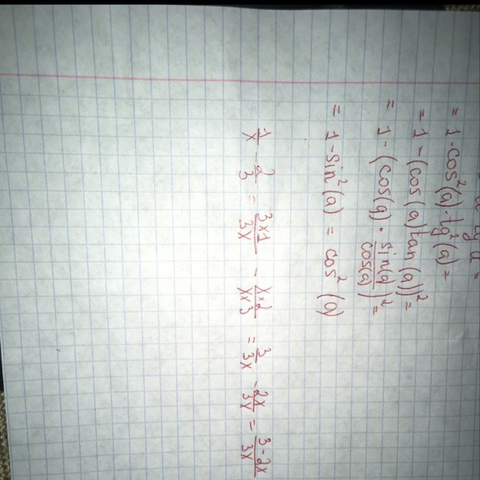 = 1-cos²(a)·tg²(a) =
= 1-(cos(a)tan(a))² =
= 1-(cos(a)·\frac{sin(a)}{cos(a)})² =
= 1-sin²(a) = cos²(a)
\frac{1}{x} - \frac{2}{3} = \frac{3×1}{3x} - \frac{x×2}{x×3} = \frac{3}{3x} - \frac{2x}{3x} = \frac{3-2x}{3x}